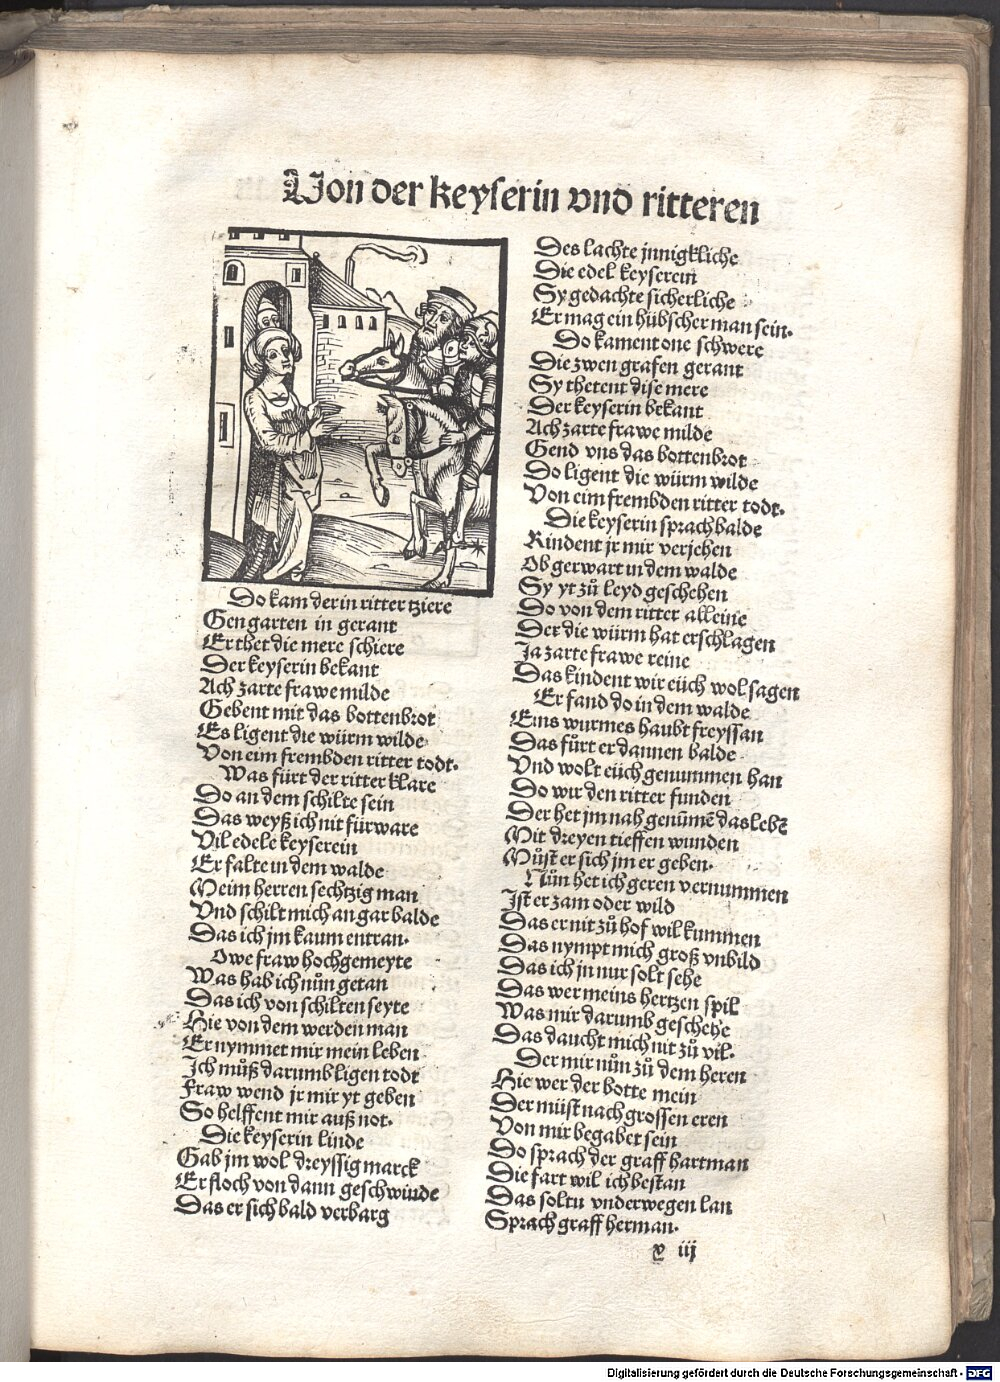 Von der keyserin vnd ritteren
Do kam der in ritter tziere
Gen garten in gerant
Er thet die mere schiere
Der keyserin bekant
Ach zarte frawe milde
Gebent mit das bottenbrot
Es ligent die würm wilde
Von eim frembden ritter todt.
Was fürt der ritter klare
Do an dem schilte sein
Das weyß ich nit fürware
Vil edele keyserein
Er falte in dem walde
Meim herren sechtzig man
Vnd schilt mich an gar balde
Das ich jm kaum entran.
Owe fraw hochgemeyte
Was hab ich nůn getan
Das ich von schilten seyte
Hie von dem werden man
Er nymmet mir mein leben
Ich můß darumb ligen todt
Fraw wend jr mir yt geben
So helffent mir auß not.
Die keyserin linde
Gab jm wol dreyssig marck
Er floch von dann geschwinde
Das er sich bald verbarg
Des lachte jnnigkliche
Die edel keyserein
Sy gedachte sicherliche
Er mag ein hübscher man sein.
Do kament one schwere
Die zwen grafen gerant
Sy thetent dise mere
Der keyserin bekant
Ach zarte frawe milde
Gend vns das bottenbrot
Do ligent die würm wilde
Von eim frembden ritter todt.
Die keyserin sprach balde
Kindent jr mir verjehen
Ob gerwart in dem walde
Sy yt zů leyd geschehen
Do von dem ritter alleine
Der die würm hat erschlagen
Ja zarte frawe reine
Das kindent wir eüch wol sagen
Er fand do in dem walde
Eins wurmes haubt freyssan
Das fůrt er dannen balde
Vnd wolt eüch genummen han
Do wir den ritter funden
Der het jm nah genūmē das lebē
Mit dreyen tieffen wunden
Můst er sich jm er geben.
Nůn het ich geren vernummen
Ist er zam oder wild
Das er nit zů hof wil kummen
Das nympt mich groß vnbild
Das ich jn nur solt sehe
Das wer meins hertzen spil
Was mir darumb geschehe
Das daucht mich nit zů vil.
Der mir nůn zů dem heren
Hie wer der botte mein
Der müst nach grossen eren
Von mir begabet sein
Do sprach der graff hartman
Die fart wil ich bestan
Das soltu vnderwegen lan
Sprach graff herman.
v iij
Digitalisierung gefördert durch die Deutsche Forschungsgemeinschaft - DFG